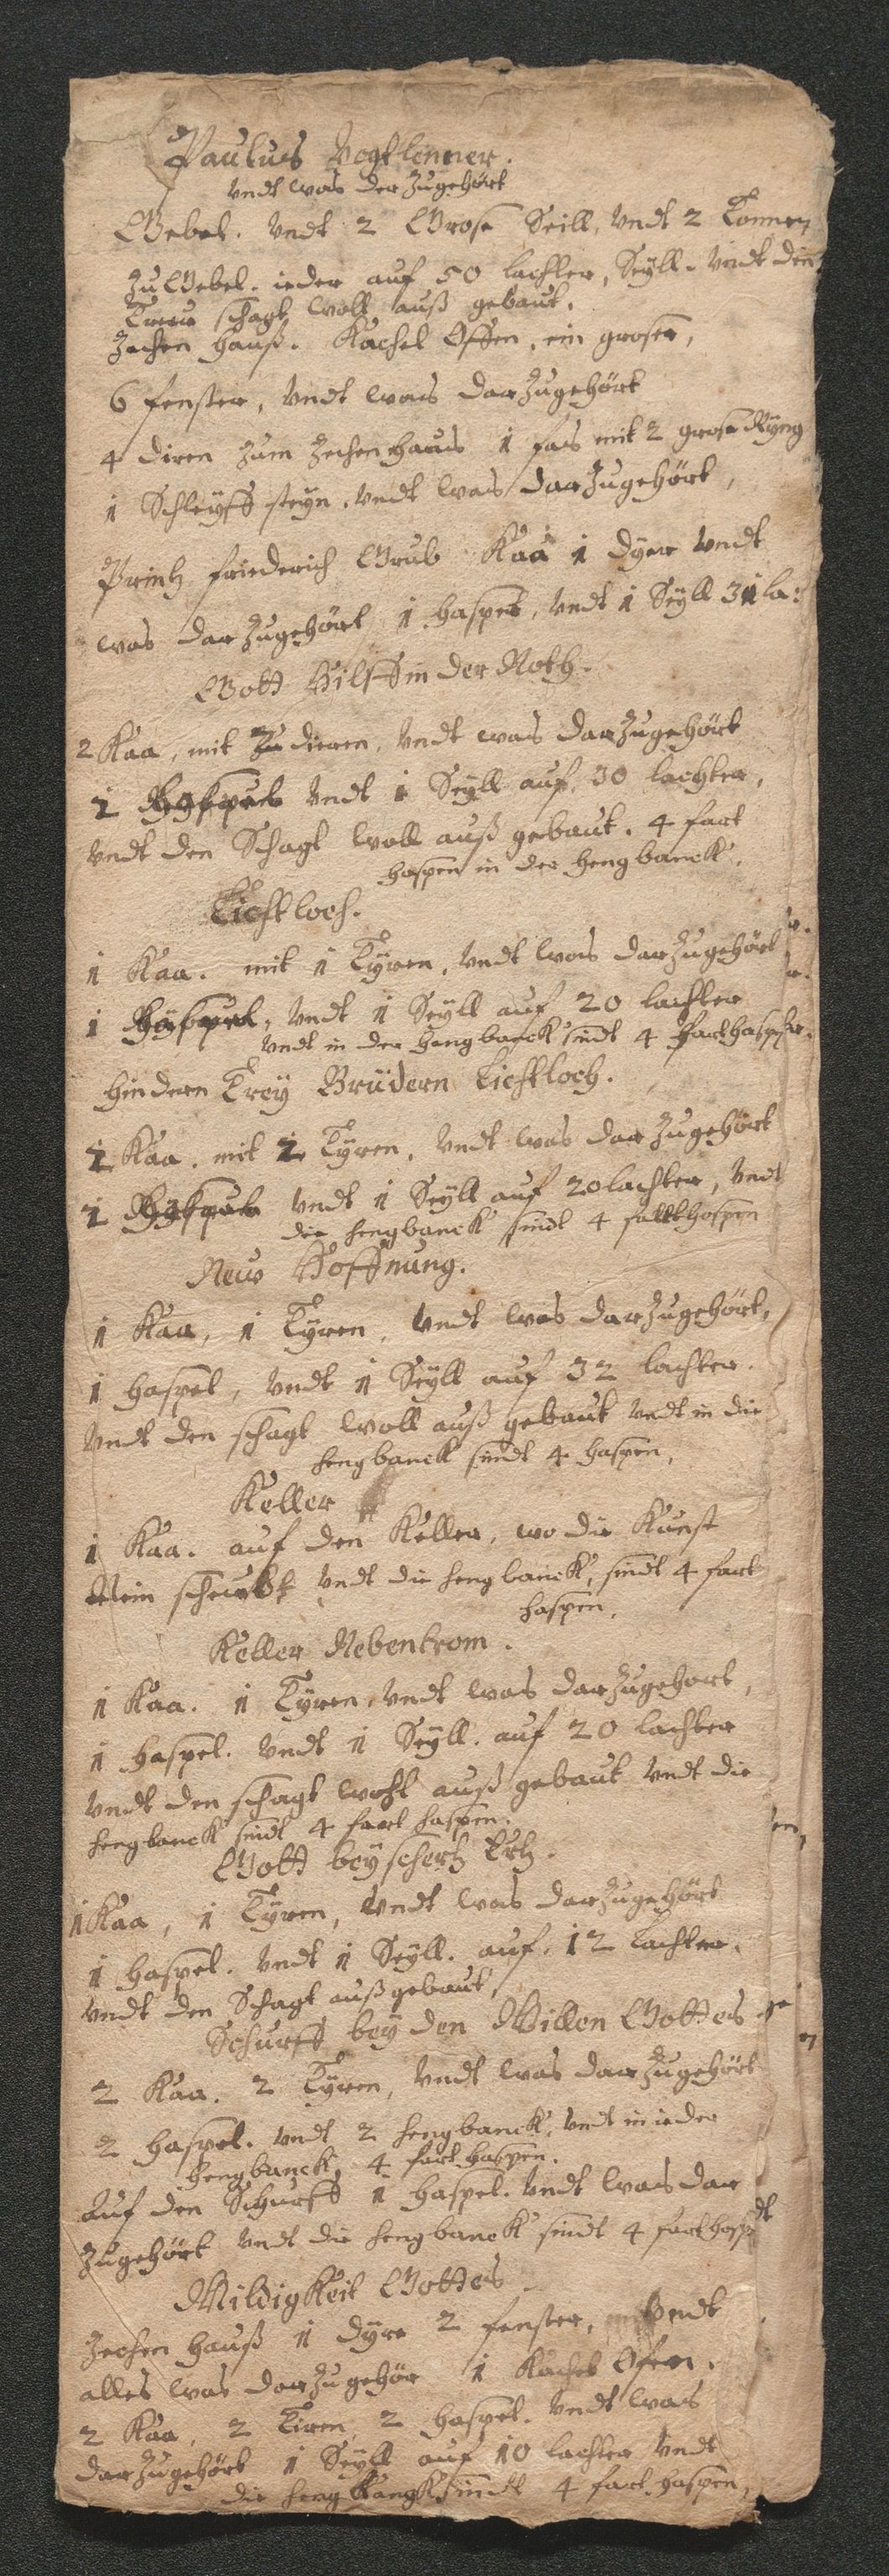 Paulus Vogtlenner.
Vndt was der Zugehört
Göbel. Vndt 2 Grose Seill, Vndt 2 Tonnen
Zu Göbel. ieder auf 50 lachter, Seyll. Vndt den
Treu schagt woll auß gebaut.
Zechen hauß. Kachel Offen, ein groser,
6 fenster, Vndt was dar Zugehört
4 diren Zum Zechenhaus 1 fas mit 2 grose Ryng
1 Schleyff steyn. Vndt was dar Zugehört,
Printz friederich Grub Kaa 1 dyer Vndt
was dar Zugehört 1 haspel, Vndt 1 Seyll 31 la:
Gott Hilff in der Noth.
2 Kaa, mit Zu dieren, Vndt was dar Zugehört
1 Haspel Vndt 1 Seyll auf 30 lachter,
Vndt den Schagt woll auß gebaut. 4 fart
haspen in der hengbanck.
Lichtloch.
1 Kaa. mit 1 Tyren, Vndt was dar Zugehört
1 Haspel, Vndt 1 Seyll auf 20 lachter
Vndt in der hengbanck sindt 4 farthaspen.
hindern Trey Brüdern Lichtloch.
1 Kaa. mit 1 Tyren, Vndt was dar Zugehört
1 Haspel Vndt 1 Seyll auf 20 lachter, Vndt
die hengbanck sindt 4 farthaspen
New Hoffnung.
1 Kaa, 1 Tyren, Vndt was dar Zugehört,
1 haspel, Vndt 1 Seyll auf 32 lachter.
Vndt den schagt woll auß gebaut Vndt in die
hengbanck sindt 4 haspen,
Keller
1 Kaa. auf den Keller, wo die Kunst
Nein scheubt Vndt die hengbanck, sindt 4 fart
haspen.
Keller Nebentrom.
1 Kaa. 1 Tyren, Vndt was dar Zugehort,
1 haspel. Vndt 1 Seyll. auf 20 lachter
Vndt den schagt wohl auß gebaut Vndt die
hengbanck sindt 4 fart haspen.
Gott beyschertz Ertz.
1 Kaa, 1 Tyren, Vndt was dar Zugehört
1 haspel. Vndt 1 Seyll. auf. 12 Lachter.
Vndt den Schagt auß gebaut,
Schurff bey den Willen Gottes
2 Kaa. 2 Tyren, Vndt was dar Zugehört
2 haspel. Vndt 2 hengbanck, Vndt in ieder
hengbanck, 4 fart haspen.
Auf den Schurff 1 haspel. Vndt was dar
Zugehört Vndt die hengbanck sindt 4 farthasp
Mildigkeit Gottes
Zechen hauß 1 dyre 2 fenster, Vndt
alles was dar Zugehör 1 Kachel Ofen.
2 Kaa, 2 Tiren, 2 haspel. Vndt was
dar Zugehört 1 Seyll auf 10 lachter Vndt
die heng Bangk sindt 4 fart haspen,